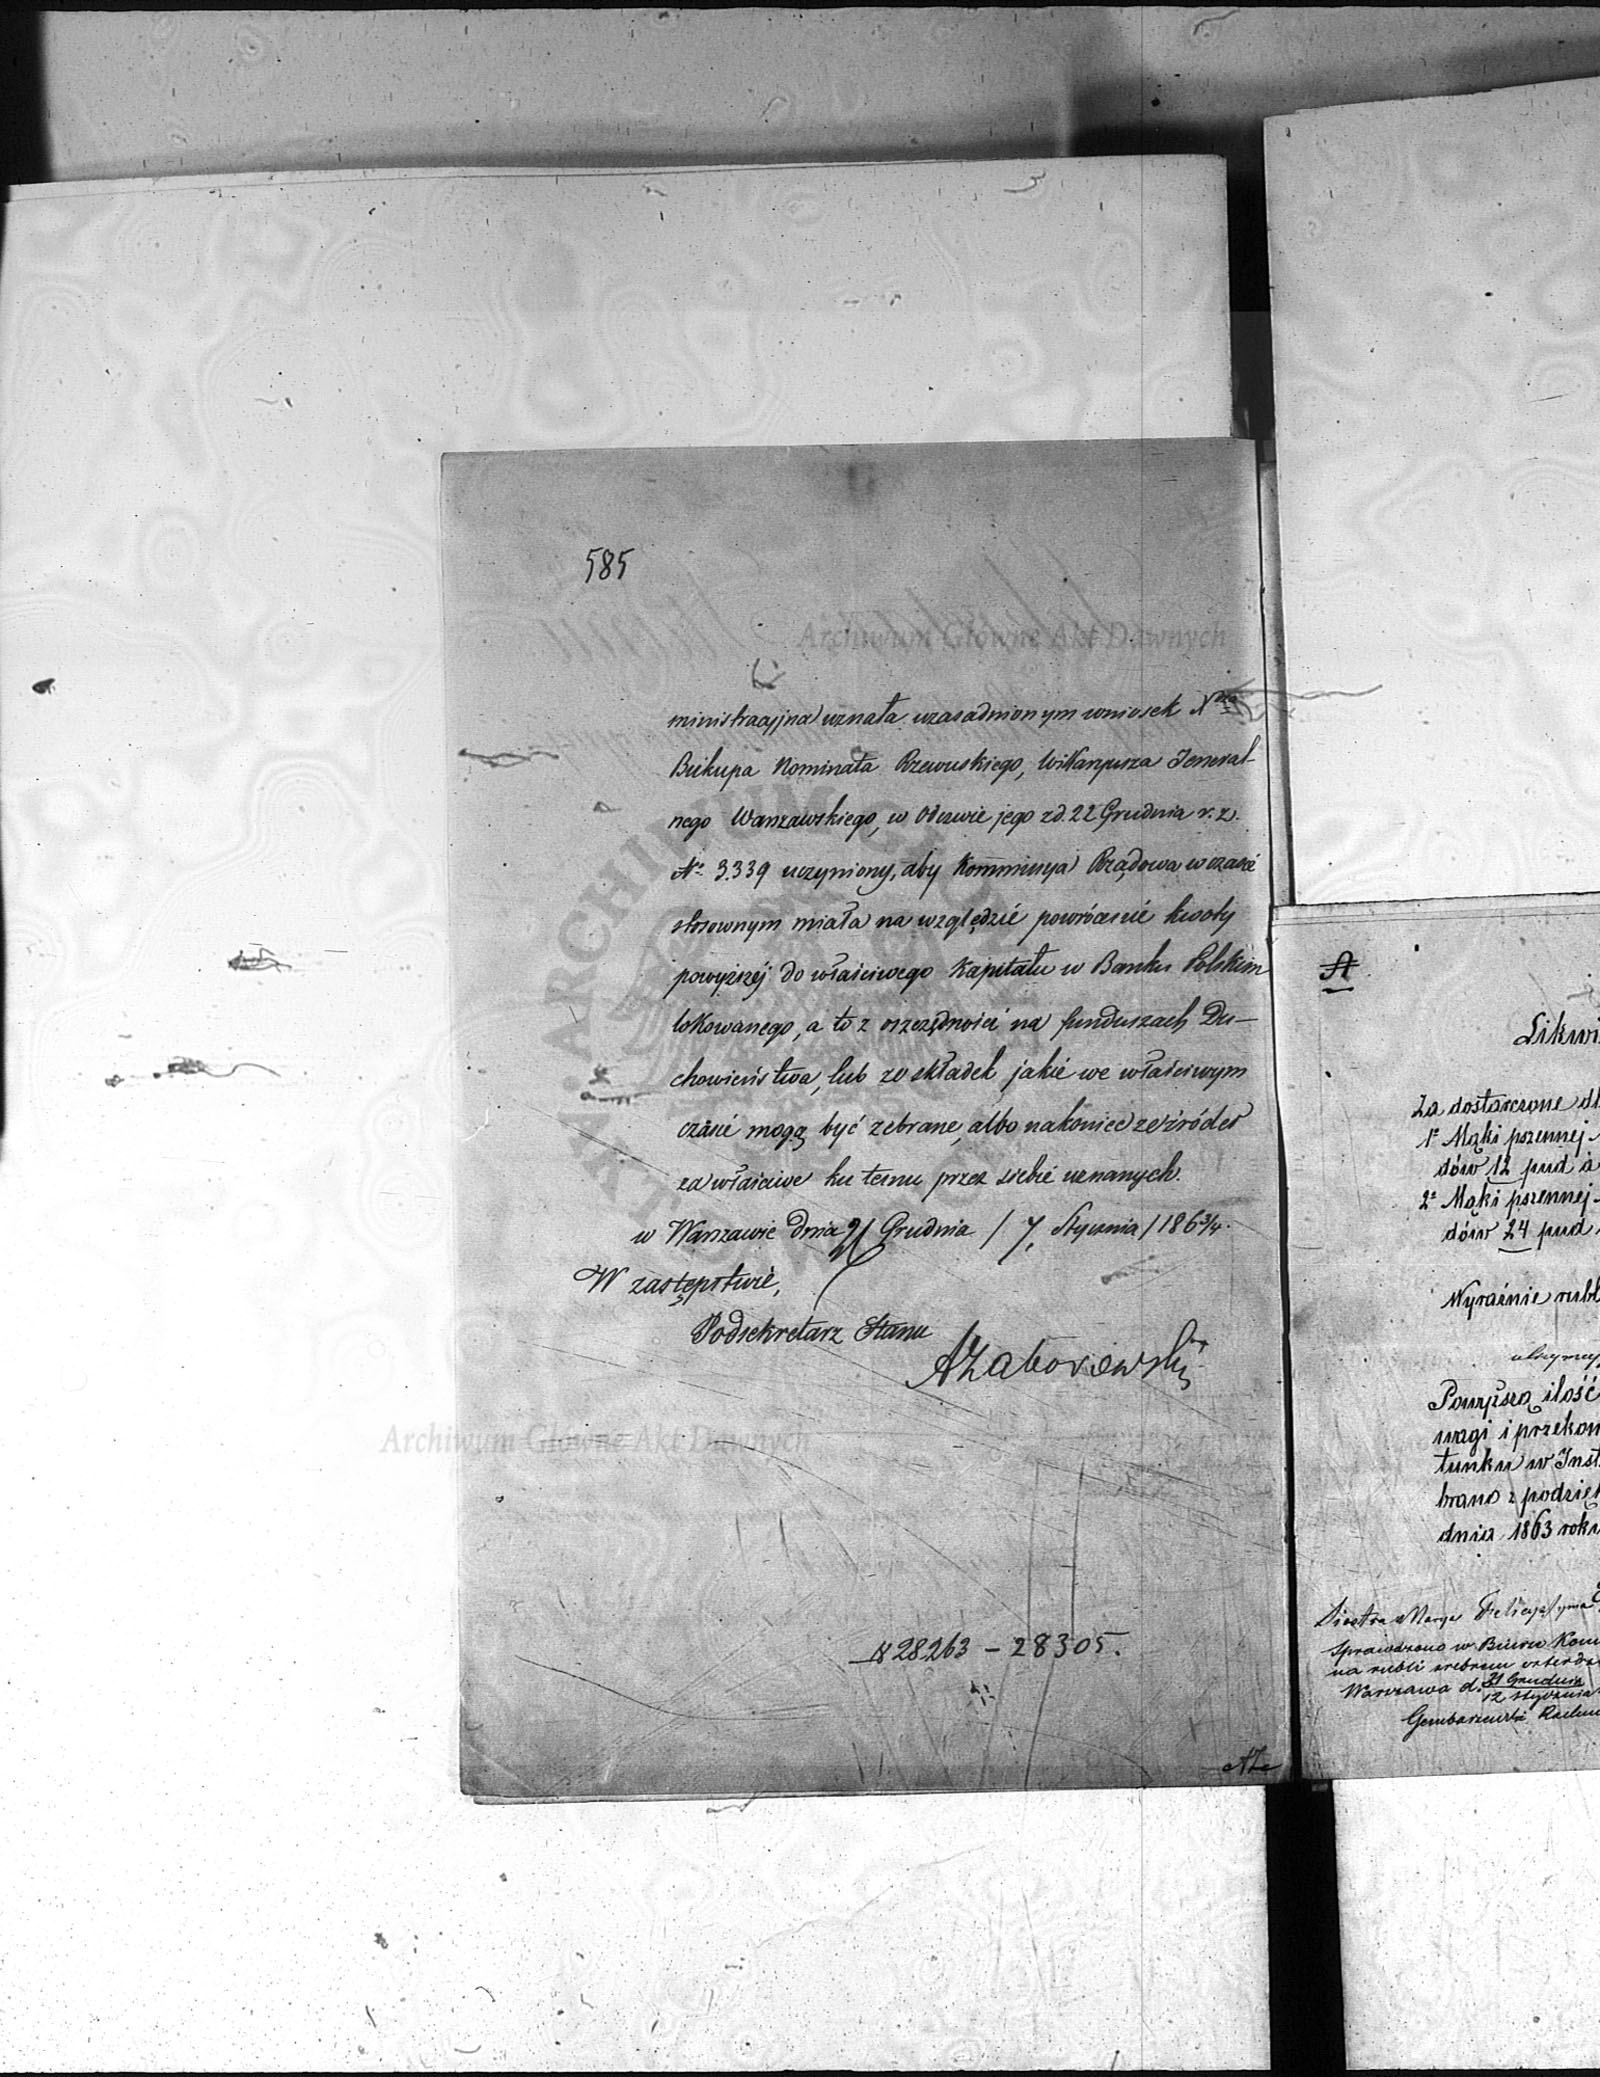 585
ministracyjna uznała uzasadnionym wniosek Xdza
Biskupa Nominata Rzewuskiego, Wikaryusza Jeneral-
nego Warszawskiego, w Odezwie jego z d. 22 Grudnia r. z.
No 3.339 uczyniony, aby Kommissya Rządowa w czasie
stosownym miała na względzie powrócenie kwoty
powyższéj do właściwego Kapitału w Banku Polskim
lokowanego, a to z oszczędności na funduszach Du-
chowieństwa, lub ze składek jakie we właściwym
czasie mogą być zebrane, albo nakoniec ze źródeł
za właściwe ku temu przez siebie uznanych.
w Warszawie dnia Grudnia / 7. Stycznia / 1863/4.
W zastępstwie,
Podsekretarz Stanu
AZaborowski
N 28263 – 28305.
Archiwum Główne Akt Dawnych
Archiwum Główne Akt Dawnych
A
Likwi
Za dostarczone dl
1e Mąki pszennej
dów 12 pud à
2e Mąki pszennej
dów 24 pud
Wyraźnie rubl
Powyższą ilość
wagi i przekon
tunku w Inst
brano z podzięk
dnia 1863 roku
Siostra Marya Felicya
Sprawdzono w Biurze Kom
na rubli srebrem
Warszawa d. 31 Grudnia
12 Stycznia